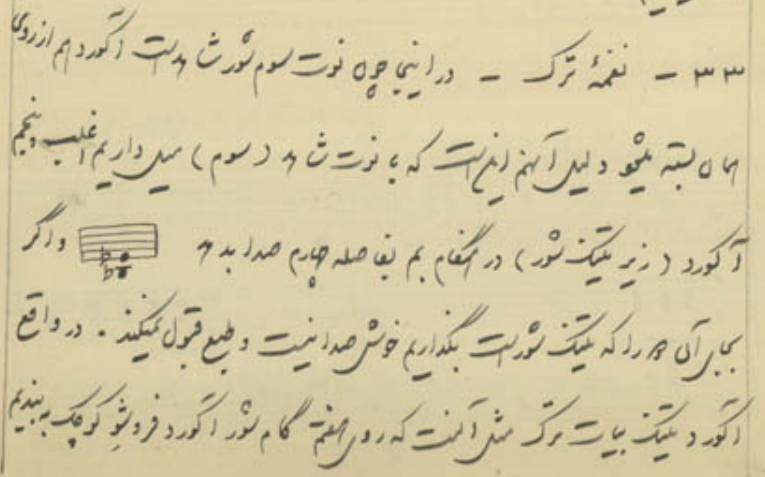 ۳۳ - نغمهٔ ترک - در اینجا چون نوت سوم شور شاهد است آکورد هم از روی
همان بسته میشود دلیل آنهم اینست که با نوت شاهد (سوم) میل داریم اغلب پنجم
آکورد (زیر تونیک شور) در هنگام بم بفاصله چهارم صدا بدهد و اگر
بجای آن را که تونیک شور است بگذاریم خوش صدا نیست و طبع قبول نمیکند. در واقع
آکورد تونیک بیات ترک مثل آنست که روی هفتم گام شور آکورد کوچک ببندیم